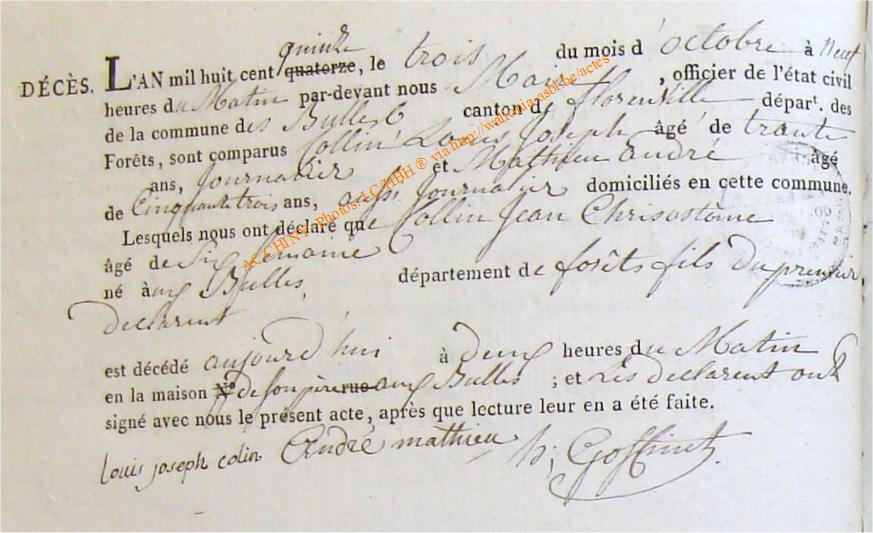 quinze
DÉCÈS. L'AN mil huit cent quatorze, le trois du mois d'octobre à neuf
heures du Matin par-devant nous Maire, officier de l'état civil
de la commune des Bulles canton de florenville départ. des
Forêts, sont comparus Collin Louis Joseph âgé de trante
ans, Journalier et Mathieu andré âgé
de Cinquante trois ans, aussi Journalier domiciliés en cette commune.
Lesquels nous ont déclaré que Collin Jean Chrisostôme
âgé de Six Semaine
né à aux Bulles, département de forêts fils du premier
declarent
est décédé aujourd'hui à deux heures du Matin
en la maison N.º de son père rue aux Bulles ; et Les declarent ont
signé avec nous le présent acte, après que lecture leur en a été faite.
louis joseph colin André mathieu h; Goffinet.
A.C CHINY - Photos LC/HBH ® via http://wallonia-asbl.be/actes